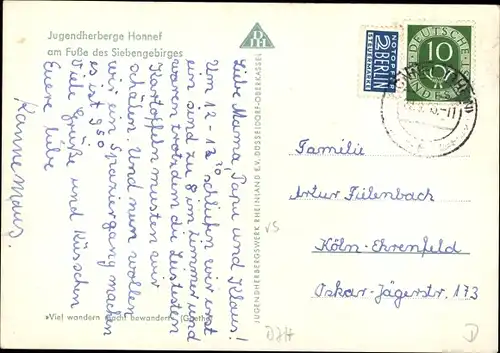 Jugendherberge Honnef
am Fuße des Siebengebirges
Liebe Mama, Papa und Klaus!
Um 12-12³⁰ schliefen wir erst
ein sind zu 8 im Zimmer und
waren trotzdem die Leisesten
Kartoffeln mussten wir
schälen. Und nun wollen
wir ein Spaziergang machen
es ist 9⁵⁰
Viele Grüße und Küsschen
Euere liebe
Kannemaus.
»Viel wandern macht bewandert« (Goethe)
DJH
JUGENDHERBERGSWERK RHEINLAND E.V. DÜSSELDORF-OBERKASSEL
NOTOPFER
2 BERLIN
STEUERMARKE
DEUTSCHE
BUNDESPOST
10
Familie
Artur Fülenbach
Köln-Ehrenfeld
Oskar-Jägerstr. 173
DJH
D